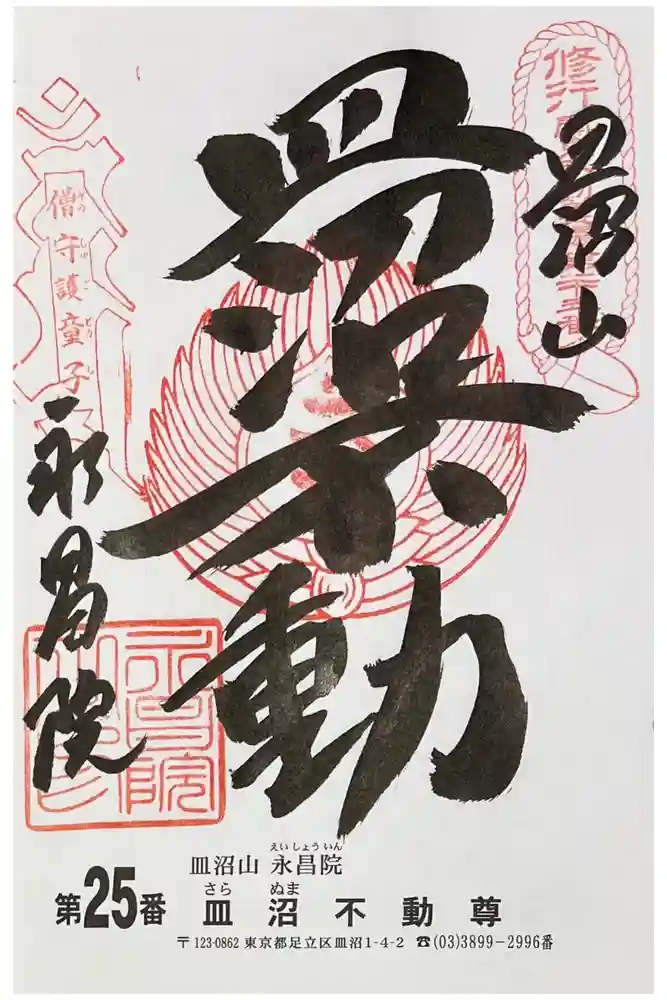 皿沼山
皿沼不動
僧守護童子
そうしゅごどうじ
永昌院
皿沼山 永昌院
えいしょういん
第25番 皿沼不動尊
さらぬま
〒123-0862 東京都足立区皿沼1-4-2 ☎(03)3899-2996番